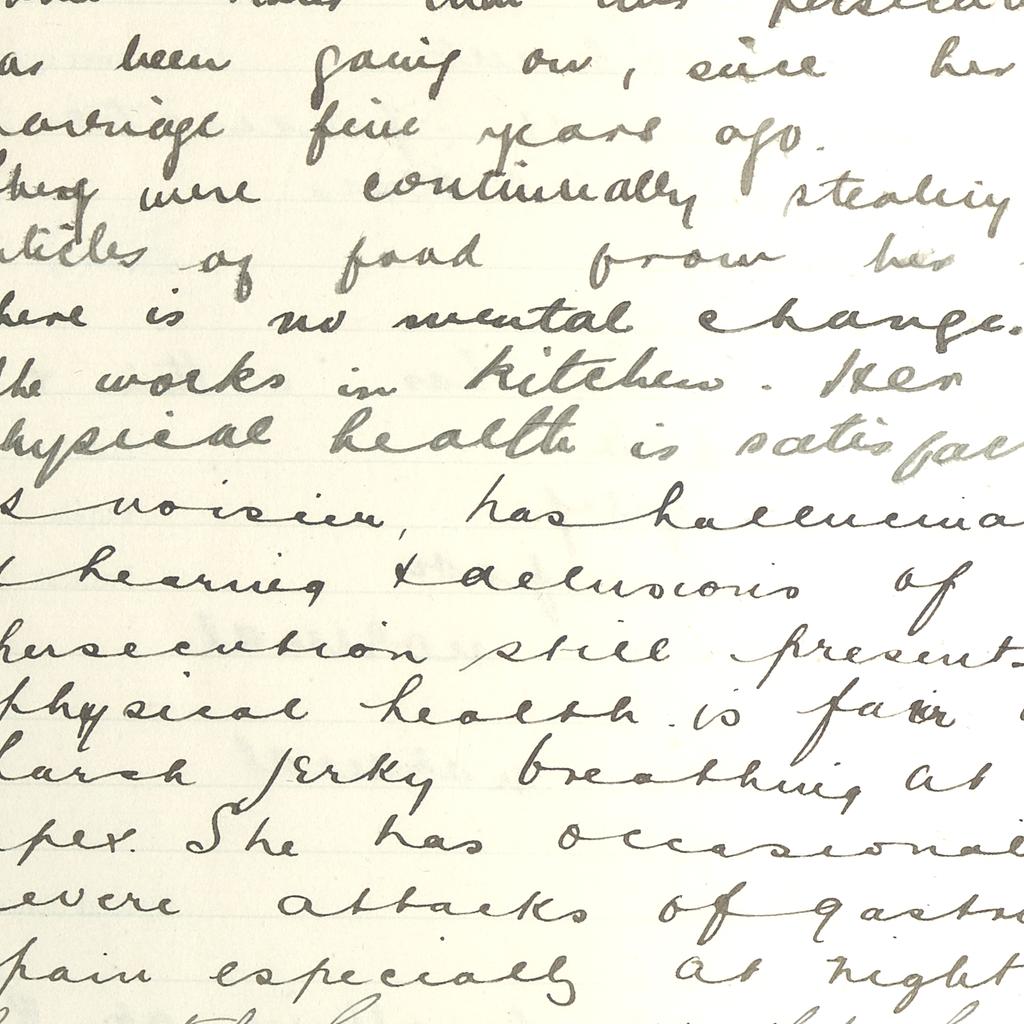 as been going on, since her
marriage five years ago.
They were continually stealing
rticles of food from her
here is no mental change.
She works in kitchen. Her
hysical health is satisfac
s noisier, has hallucina
f hearing & delusions of
persecution still present.
physical health is fair
harsh jerky breathing at
apex. She has occasional
severe attacks of gastri
pain especially at night